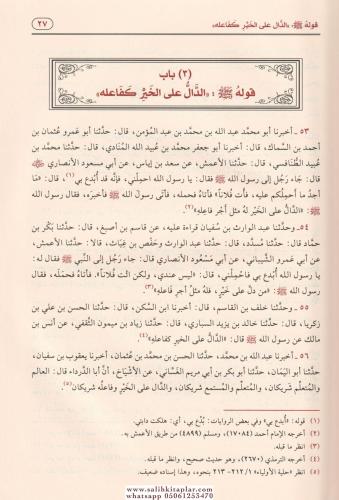 قوله ﷺ: «الدَّال على الخَيْر كَفَاعله»
٢٧
(٢) باب
قولهُ ﷺ : «الدَّالُّ على الخَيْرِ كَفَاعله»
٥٣ ـ أخبرنا أبو محمَّد عبد الله بن محمَّد بن عبد المؤمن، قال: حدَّثنا أبو عمرو عثمان بن
أحمد بن السَّماك، قال: أخبرنا أبو جعفر محمَّد بن عُبيد الله المُنَادي، قال: حدَّثنا محمَّد بن
عُبيد الطَّنَافسي، قال: حدَّثنا الأعمش، عن سعد بن إياس، عن أبي مسعود الأنصاري
قال: جاء رَجُل إلى رسول الله ﷺ فقال: يا رسول الله احمِلْني، فإنَّه قد أُبْدع بي(١)، قال: «ما
أجدُ ما أحمِلُكم عليه، فأت فُلَاناً» فأتاه فحمله، فأتى رسولَ الله ﷺ فأخبره، فقال رسول الله
ﷺ: «الدَّالُّ على الخَيْر لهُ مثل أجر فاعِلِه»(٢).
٥٤ ـ وحدَّثنا عبد الوارث بن سُفيان قراءة عليه، عن قاسم بن أصبغ، قال: حدَّثنا بَكْر بن
حمَّاد قال: حدَّثنا مُسدَّد، قال: حدَّثنا عبد الوارث وحَفْص بن غِيَاث، قالا: حدَّثنا الأعمش،
عن أبي عمرو الشَّيباني، عن أبي مَسْعُود الأنصاري قال: جاء رَجُل إلى النَّبي ﷺ فقال له:
يا رسول الله أُبدع بي فاحْمِلْني، قال: «ليس عندي، ولكن ائت فُلَاناً». فأتاهُ فحمَله، فقال
رسول الله ﷺ: «من دلَّ على خَيْرٍ، فلهُ مثلُ أجرِ فاعلِه»(٣).
٥٥ ـ وحدَّثنا خلف بن القاسم، قال: أخبرنا ابن السَّكن، قال: حدَّثنا الحسن بن علي بن
زكريا، قال: حدَّثنا خالد بن يزيد السياري، قال: حدَّثنا زياد بن ميمون الثَّقفي، عن أنس بن
مالك عن رسول الله ﷺ قال: «الدَّالُّ على الخير كفاعله»(٤).
٥٦ ـ أخبرنا عبد الله بن محمَّد، حدَّثنا الحسن بن محمَّد بن عُثمان، أخبرنا يعقوب بن سفيان،
حدَّثنا أبو اليَمَان، حدَّثنا أبو بكر بن أبي مريم الغسَّاني، عن الأشْيَاخ، أنَّ أبا الدَّرداء قال: العالم
والمتعلِّم شَريكان، والمُتعلِّم والمستمع شريكان، والدَّال على الخَيْر وفاعلُه شريكان(٥).
(١) قوله: «أُبدع بي» وفي بعض الروايات: بُدِّع بي، أي: هلكت دابتي.
(٢) أخرجه الإمام أحمد (١٧٠٨٤)، ومسلم (٤٨٩٩) من طريق الأعمش به.
(٣) انظر ما قبله.
(٤) أخرجه الترمذي (٢٦٧٠)، وهو حديث صحيح، وانظر ما قبله.
(٥) انظر «حلية الأولياء» ١/٢١٢-٢١٣ بنحوه، وهذا إسناده ضعيف.
www.salihkitaplar.com
whatsapp 05061253470